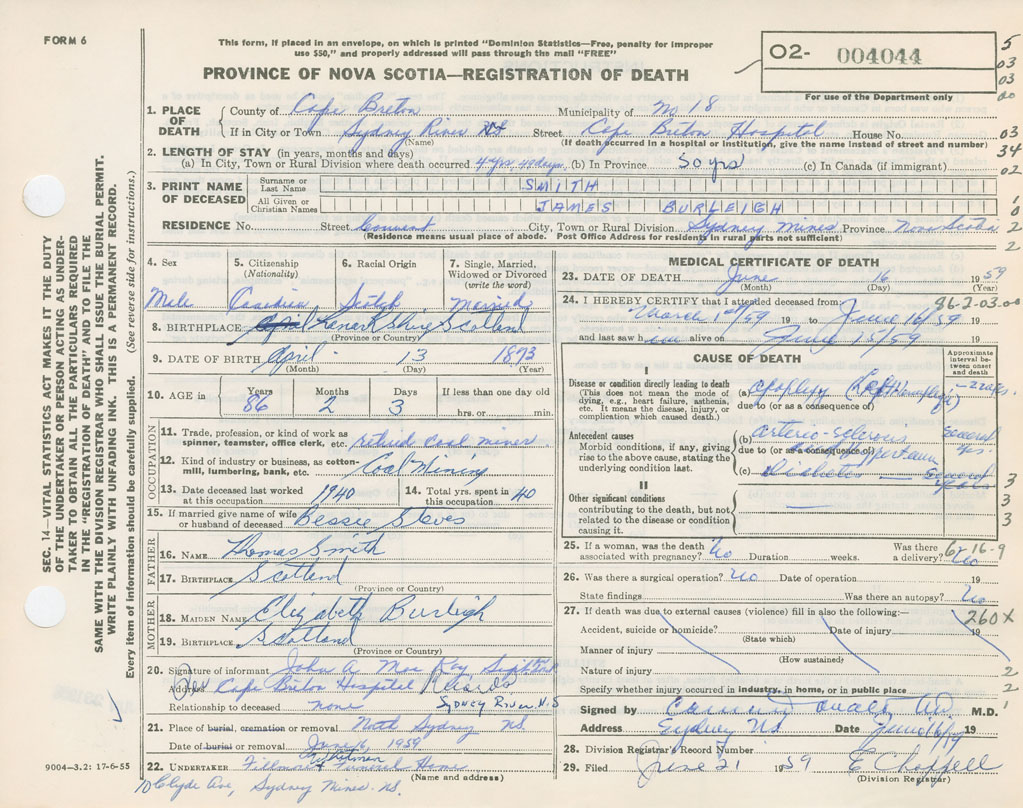 FORM 6
This form, if placed in an envelope, on which is printed "Dominion Statistics—Free, penalty for improper
use $50," and properly addressed will pass through the mail "FREE"
PROVINCE OF NOVA SCOTIA—REGISTRATION OF DEATH
02- 004044
For use of the Department only
5
03
03
00
03
34
02
SEC. 14—VITAL STATISTICS ACT MAKES IT THE DUTY
OF THE UNDERTAKER OR PERSON ACTING AS UNDER-
TAKER TO OBTAIN ALL THE PARTICULARS REQUIRED
IN THE "REGISTRATION OF DEATH" AND TO FILE THE
SAME WITH THE DIVISION REGISTRAR WHO SHALL ISSUE THE BURIAL PERMIT.
WRITE PLAINLY WITH UNFADING INK. THIS IS A PERMANENT RECORD.
Every item of information should be carefully supplied. (See reverse side for instructions.)
1. PLACE OF DEATH County of Cape Breton Municipality of No 18
If in City or Town Sydney River Street Cape Breton Hospital House No.
(Name) (If death occurred in a hospital or institution, give the name instead of street and number)
2. LENGTH OF STAY (in years, months and days)
(a) In City, Town or Rural Division where death occurred 4 yrs, 49 days (b) In Province 50 yrs (c) In Canada (if immigrant)
3. PRINT NAME OF DECEASED Surname or Last Name SMITH
All Given or Christian Names JAMES BURLEIGH
RESIDENCE No. Street Convent City, Town or Rural Division Sydney Mines Province Nova Scotia
(Residence means usual place of abode. Post Office Address for residents in rural parts not sufficient)
4. Sex 5. Citizenship (Nationality) 6. Racial Origin 7. Single, Married, Widowed or Divorced (write the word)
Male Canadian Scotch Married
8. BIRTHPLACE Lanark Shire Scotland
(Province or Country)
9. DATE OF BIRTH April 13 1873
(Month) (Day) (Year)
10. AGE in Years Months Days If less than one day old
86 2 3 hrs. or min.
OCCUPATION
11. Trade, profession, or kind of work as
spinner, teamster, office clerk, etc. retired coal miner
12. Kind of industry or business, as cotton-
mill, lumbering, bank, etc. Coal Mining
13. Date deceased last worked at this occupation 1940 14. Total yrs. spent in this occupation 40
15. If married give name of wife or husband of deceased Bessie Steves
FATHER
16. NAME Thomas Smith
17. BIRTHPLACE Scotland
(Province or Country)
MOTHER
18. MAIDEN NAME Elizabeth Burleigh
19. BIRTHPLACE Scotland
(Province or Country)
20. Signature of informant John A. Mac Kay
Address Cape Breton Hospital Records
Relationship to deceased none SYDNEY RIVER, N.S
21. Place of burial, cremation or removal North Sydney NS.
Date of burial or removal June 16, 1959
22. UNDERTAKER Fillmore & Whitman Funeral Home
(Name and address)
10 Clyde Ave, Sydney Mines. NS.
9004—3.2: 17-6-55
MEDICAL CERTIFICATE OF DEATH
23. DATE OF DEATH June 16 1959
(Month) (Day) (Year)
24. I HEREBY CERTIFY that I attended deceased from: 86-2-03.00
March 1st/59 19 to June 16/59 19
and last saw him alive on June 15/59 19
CAUSE OF DEATH
Approximate interval between onset and death
I
Disease or condition directly leading to death
(This does not mean the mode of
dying, e.g., heart failure, asthenia,
etc. It means the disease, injury, or
complication which caused death.)
(a) apoplexy (Left Hemiplegia)
due to (or as a consequence of)
Antecedent causes
Morbid conditions, if any, giving
rise to the above cause, stating the
underlying condition last.
(b) arterio-sclerosis several yrs.
due to (or as a consequence of)
(c) Diabetes — several years
II
Other significant conditions
contributing to the death, but not
related to the disease or condition
causing it.
3
3
3
25. If a woman, was the death associated with pregnancy? No Duration weeks. Was there a delivery? No
6-16-9
26. Was there a surgical operation? No Date of operation 19
State findings Was there an autopsy? No
27. If death was due to external causes (violence) fill in also the following:— 260X
Accident, suicide or homicide? Date of injury 19
(State which)
Manner of injury
(How sustained)
Nature of injury 2
Specify whether injury occurred in industry, in home, or in public place 2
Signed by M.D. 1
Address Sydney NS. Date June 16/59 19
28. Division Registrar's Record Number
29. Filed June 21 1959 E Chappell
(Division Registrar)